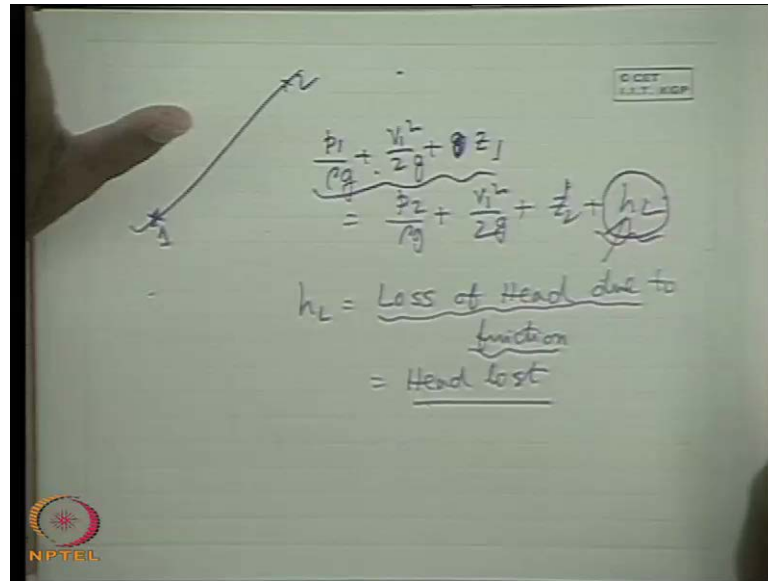 © CET
I.I.T. KGP
2
1
p₁/ρg + V₁²/2g + z₁
= p₂/ρg + V₁²/2g + z₂ + hL
hL = Loss of Head due to
friction
= Head lost
NPTEL